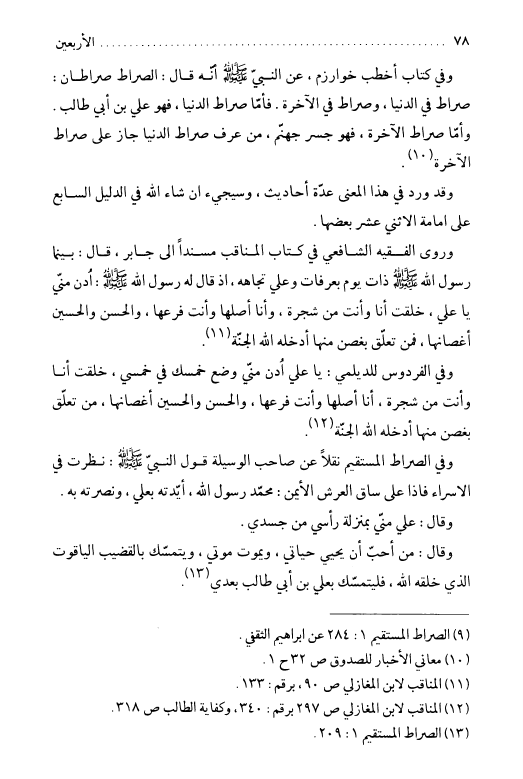 ٧٨ ........................................................ الأربعين
وفي كتاب أخطب خوارزم ، عن النبيّ ﷺ أنّـه قـال : الصراط صراطـان :
صراط في الدنيا ، وصراط في الآخرة . فأمّا صراط الدنيا ، فهو علي بن أبي طالب .
وأمّا صراط الآخرة ، فهو جسر جهنّم ، من عرف صراط الدنيا جاز على صراط
الآخرة(١٠) .
وقد ورد في هذا المعنى عدّة أحاديث ، وسيجيء ان شاء الله في الدليل السـابع
على امامة الاثني عشر بعضها .
وروى الفـقيه الشـافعي في كـتاب المـناقب مسـنداً الى جـابر ، قـال : بـينما
رسول الله ﷺ ذات يوم بعرفات وعلي تجاهه ، اذ قال له رسول الله ﷺ : اُدن منّي
يا علي ، خلقت أنا وأنت من شجرة ، وأنا أصلها وأنت فرعها ، والحسن والحسين
أغصانها ، فمن تعلّق بغصن منها أدخله الله الجنّة(١١).
وفي الفردوس للديلمي : يا علي اُدن منّي وضع خمسك في خمسي ، خلقت أنـا
وأنت من شجرة ، أنا أصلها وأنت فرعها ، والحسن والحسين أغصانها ، من تعلّق
بغصن منها أدخله الله الجنّة(١٢).
وفي الصراط المستقيم نقلاً عن صاحب الوسيلة قول النبيّ ﷺ : نـظرت في
الاسراء فاذا على ساق العرش الأيمن : محمّد رسول الله ، أيّدته بعلي ، ونصرته به .
وقال : علي منّي بمنزلة رأسي من جسدي .
وقال : من أحبّ أن يحيي حياتي ، ويموت موتي ، ويتمسّك بالقضيب الياقوت
الذي خلقه الله ، فليتمسّك بعلي بن أبي طالب بعدي(١٣).
(٩) الصراط المستقيم ١ : ٢٨٤ عن ابراهيم الثقفي .
(١٠) معاني الأخبار للصدوق ص ٣٢ ح ١ .
(١١) المناقب لابن المغازلي ص ٩٠ ، برقم : ١٣٣ .
(١٢) المناقب لابن المغازلي ص ٢٩٧ برقم : ٣٤٠ ، وكفاية الطالب ص ٣١٨ .
(١٣) الصراط المستقيم ١ : ٢٠٩ .